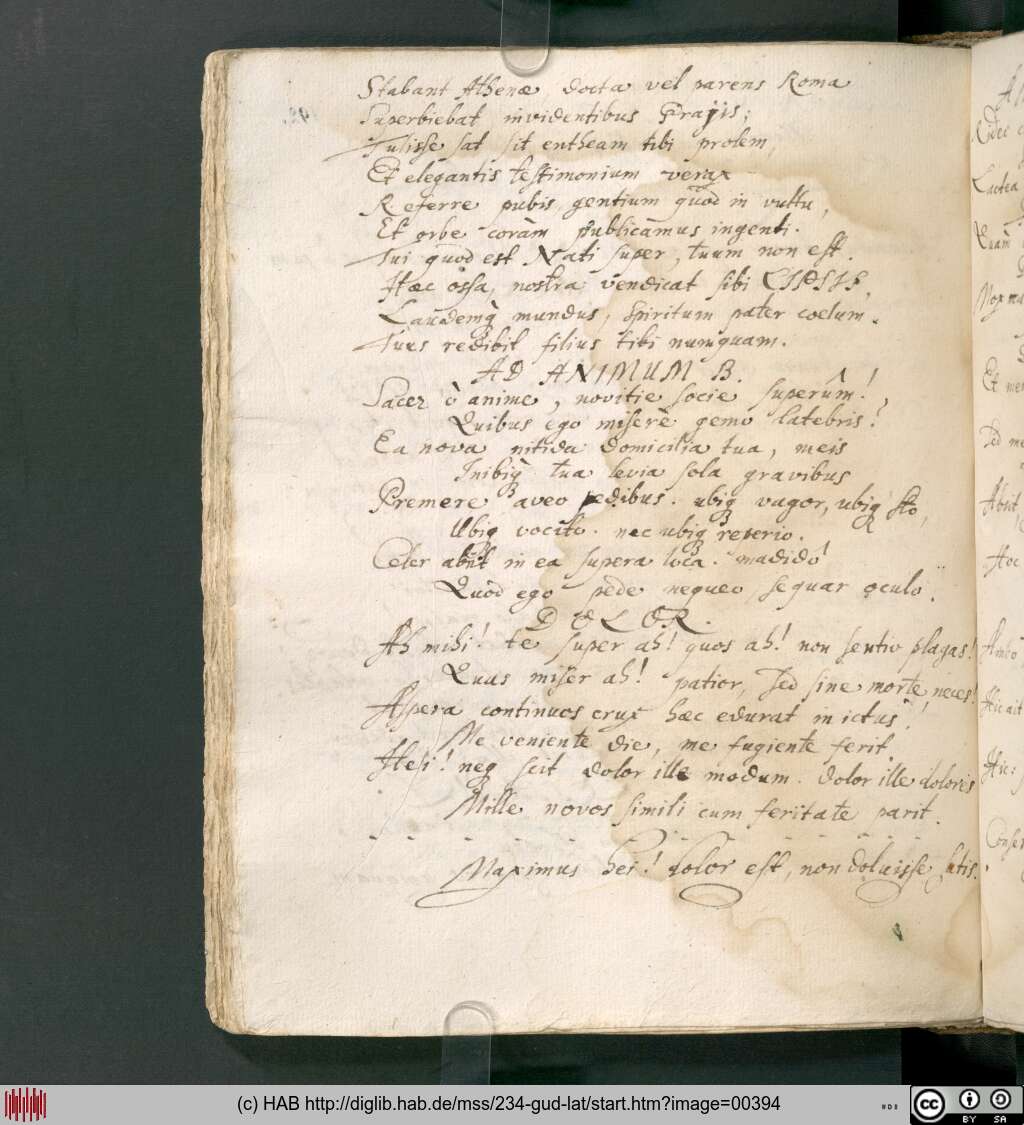 Stabant Athenæ, docta vel parens Roma
Superbiebat invidentibus Grajis;
Tulisse sat sit entheam tibi prolem,
Et elegantis testimonium verax
Referre pubis, gentium quod in vultu,
Et orbe coràm publicamus ingenti.
Tui quod est Nati super, tuum non est.
Hæc ossa, nostra vendicat sibi LIPSIS,
Laudemq mundus, spiritum pater coelum.
Tuus redibit filius tibi numquam.
AD ANIMUM B.
Sacer ò anime, novitie socie superûm!,
Quibus ego miserè gemo latebris!
Ea nova nitida domicilia tua, meis
Inibiq tua levia sola gravibus
Premere aveo pedibus. ubiq vagor, ubiq sto,
Ubiq vocito. nec ubiq reperio.
Celer abiit in ea supera loca. madido!
Quod ego pede nequeo, sequar oculo.
DOLOR.
Ah mihi! te super ah! quos ah! non sentio plagas!
Quas miser ah! patior, sed sine morte neces!
Aspera continuos crux hæc edurat in ictus!
Me veniente die, me fugiente ferit.
Hei! neq scit dolor ille modum. dolor ille doloris
Mille novos simili cum feritate parit.
- - - - - - - - - - - -
Maximus hei! dolor est, non doluisse satis.
Lactea
Quàm
Et
Absit
Hoc
Hic ait
Hic:
(c) HAB http://diglib.hab.de/mss/234-gud-lat/start.htm?image=00394
cc
BY SA